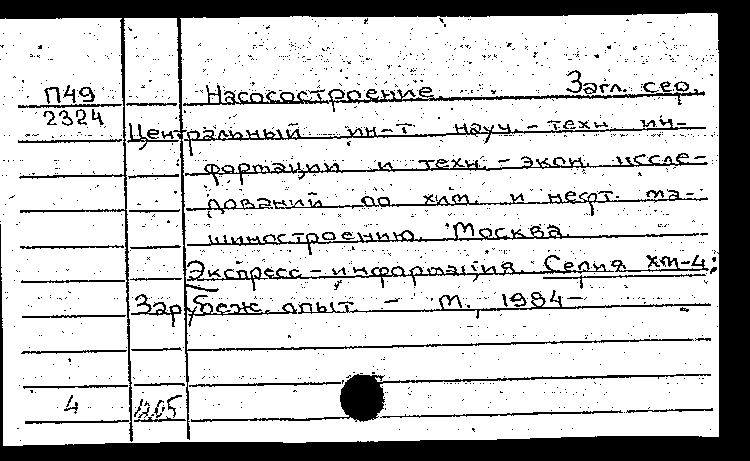 П49 Насосостроение. Загл. сер.
2324
Центральный ин-т науч.-техн. ин-
формации и техн.-экон. иссле-
дований по хим. и нефт. ма-
шиностроению. Москва.
Экспресс-информация. Серия ХМ-4:
Зарубеж. опыт. - М., 1984-
4